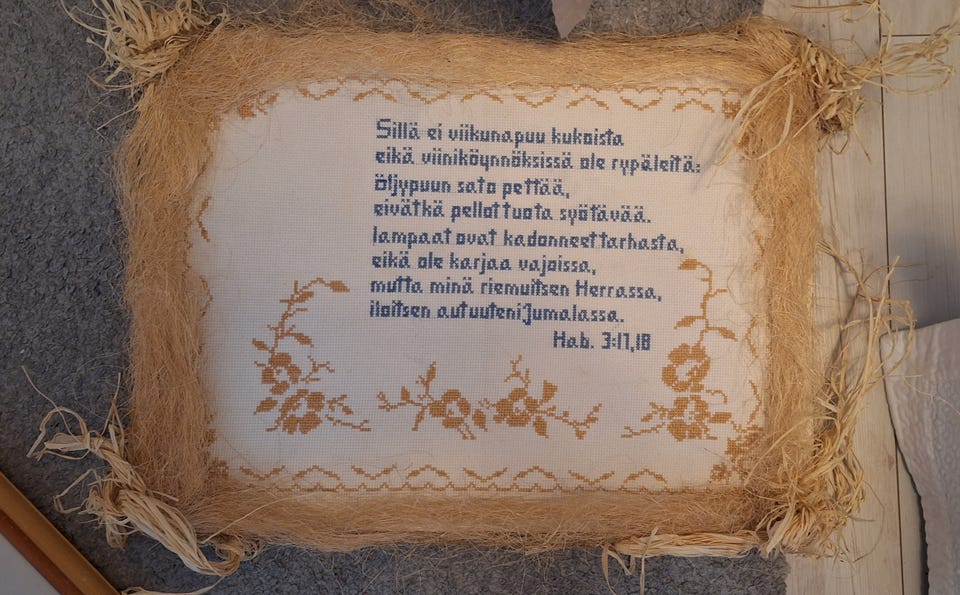 Sillä ei viikunapuu kukoista
eikä viiniköynnöksissä ole rypäleitä:
öljypuun sato pettää,
eivätkä pellot tuota syötävää.
lampaat ovat kadonneet tarhasta,
eikä ole karjaa vajoissa,
mutta minä riemuitsen Herrassa,
iloitsen autuuteni Jumalassa.
Hab. 3:17,18